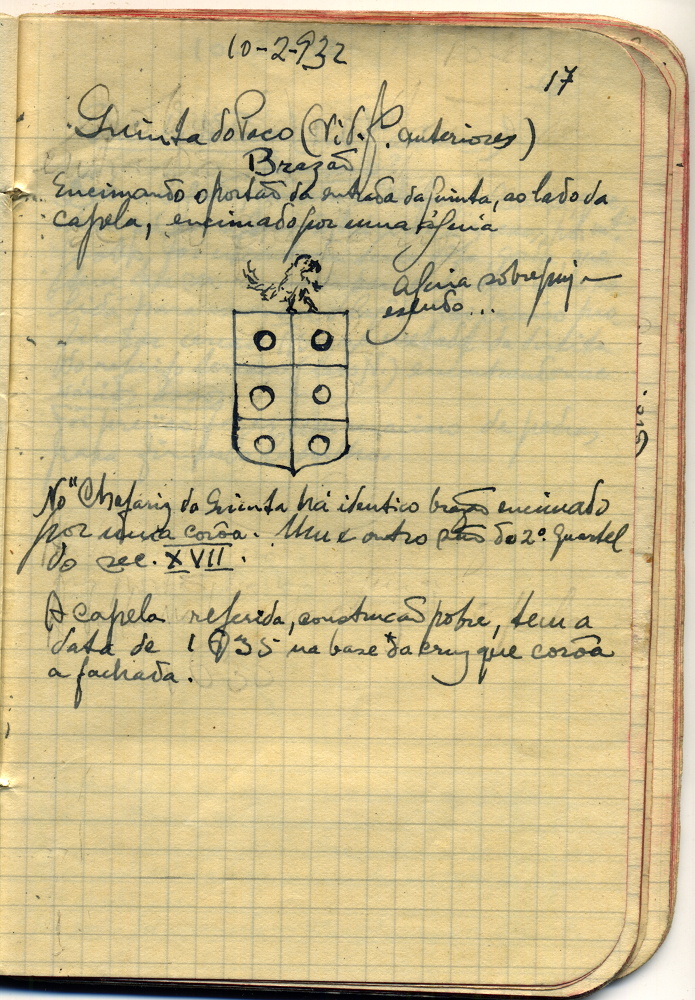 10-2-932
17
Quinta do Paço (Vid. f. anteriores)
Brazão
Encimando o portão da entrada da Quinta, ao lado da
capela, encimado por uma águia
Aguia sobrepuj-
escudo...
No Chafariz da Quinta há identico brazão encimado
por uma corôa. Um e outro são do 2º. quartel
do sec. XVII.
A capela referida, construcão pobre, tem a
data de 1635 na base da cruz que corôa
a fachada.